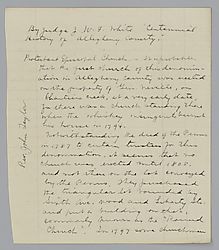 By Judge J. W. F. White "Centennial
History of Allegheny County."
Protestant Episcopal Church — It is probable
that the first church of this denomin-
ation in Allegheny County was erected
on the property of Gen. Neville, on
Chartiers creek, at a very early day
for there was a church standing there
when the whiskey insurgents burnt
his house in 1794.
Notwithstanding the deed of the Penns
in 1787 to certain trustees for this
denomination, it seems that no
church was erected until 1805,
and not then on the lot conveyed
by the Penns. They purchased
the triangular lot bounded by
Sixth Ave, Wood and Liberty Sts
and put a building on it,
commonly known as the "Round
Church". In 1797 some churchmen
Rev. John Taylor